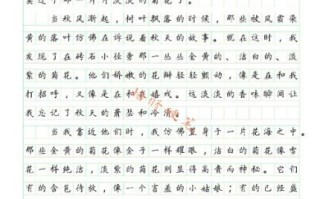 当秋风渐起，树叶飘落的时候，那些被风霜染
黄的落叶仿佛在诉说着秋天的故事。就在这时，我
发现了在砖石小径旁那一丛丛金黄的、洁白的、淡
紫的菊花。他们娇嫩的花瓣轻轻颤动，像是在和我
打招呼，又像是在和我嬉戏。这淡淡的香味瞬间让
我忘记了秋天的萧瑟和冷清。
当我靠近他们时，我仿佛置身于一片花海之中。
那些金黄的菊花像金子一样耀眼，洁白的菊花像雪
花一样纯洁，淡紫的菊花则显得高贵而神秘。它们
有的含苞待放，像一个害羞的小姑娘；有的已经盛